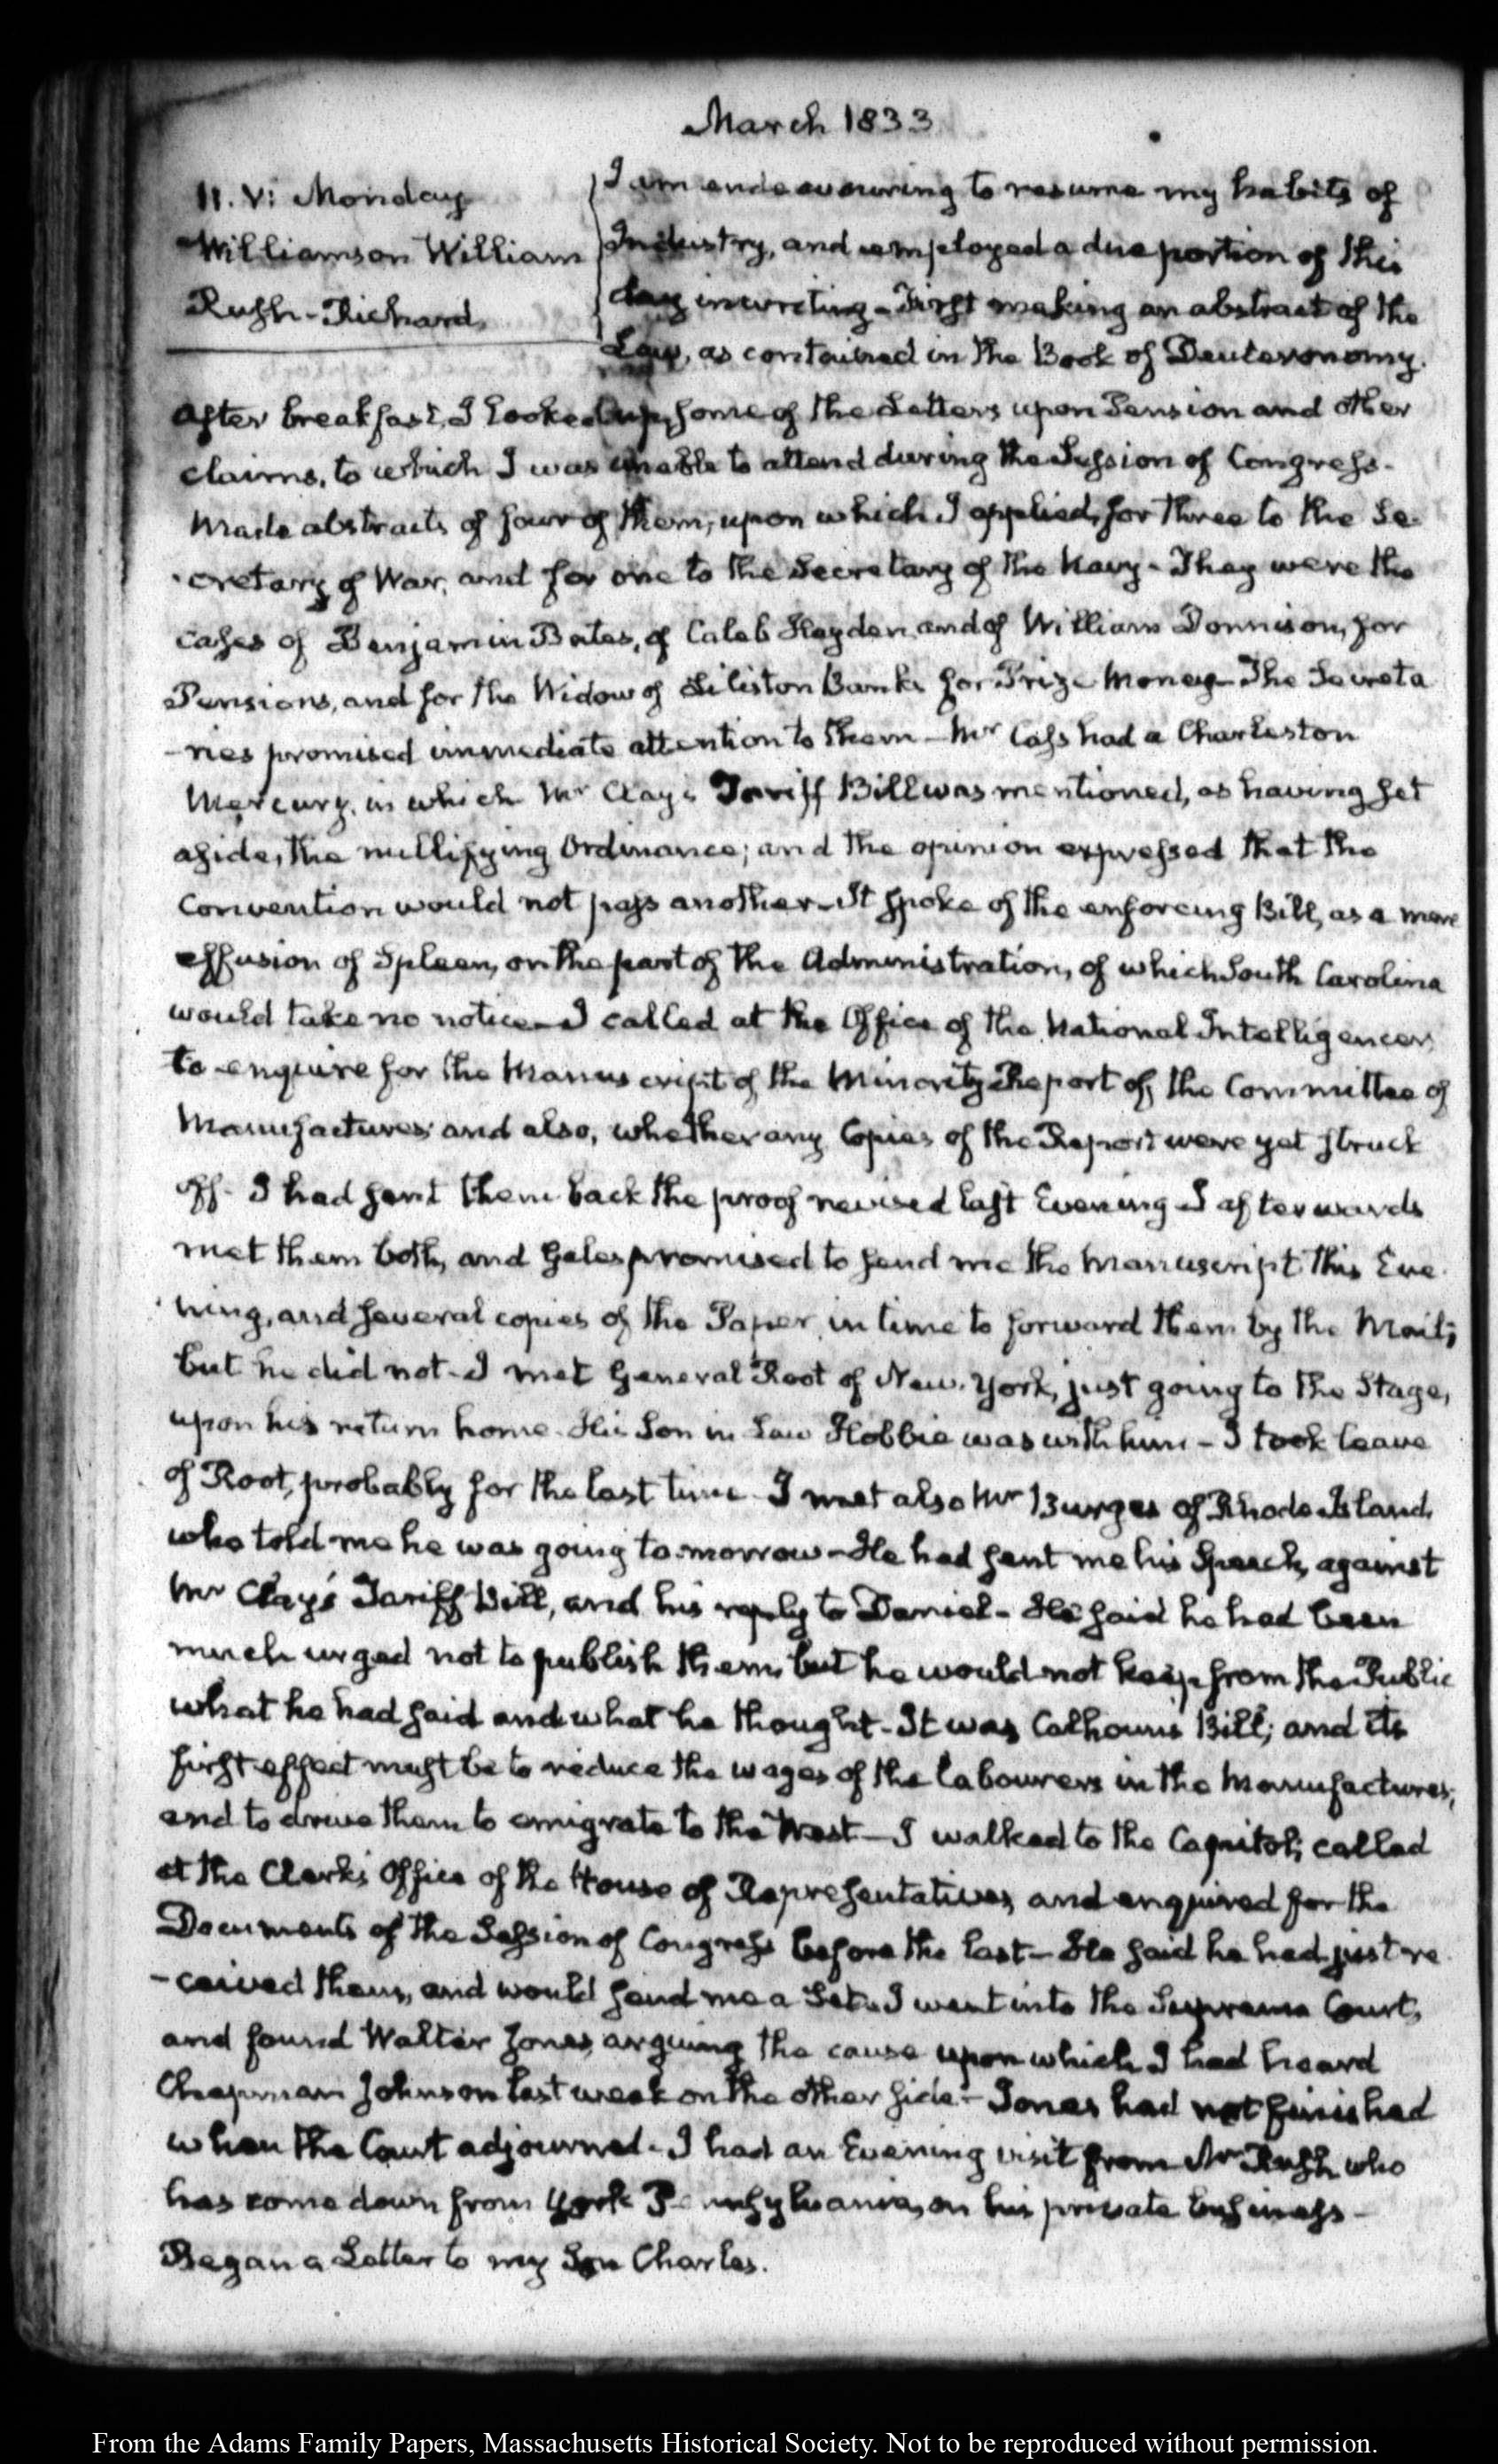 March 1833
11. V: Monday
Williamson William
Rush-Richard
I am endeavouring to resume my habits of
Industry, and employed a due portion of this
day in writing - First making an abstract of the
Law, as contained in the Book of Deuteronomy.
After breakfast, I looked up, some of the Letters upon Pension and other
claims, to which I was unable to attend during the Session of Congress.
Made abstracts of four of them, upon which I applied, for three to the Se-
-cretary of War, and for one to the Secretary of the Navy - They were the
cases of Benjamin Bates, of Caleb Hayden, and of William Donnison, for
Pensions, and for the Widow of Siliston Banks for Prize Money - The Secreta
-ries promised immediate attention to them - Mr Cass had a Charleston
Mercury, in which Mr Clay's Tariff Bill was mentioned, as having set
aside, the nullifying Ordinance; and the opinion expressed that the
Convention would not pass another - It spoke of the enforcing Bill, as a mere
effusion of Spleen, on the part of the Administration, of which South Carolina
would take no notice - I called at the Office of the National Intelligencer,
to enquire for the Manuscript of the Minority Report of the Committee of
Manufactures and also, whether any Copies of the Report were yet struck
off - I had sent them back the proof revised last Evening - I afterwards
met them both, and Gales promised to send me the Manuscript this Eve-
ning, and several copies of the Paper, in time to forward them by the Mail;
but he did not - I met General Root of New-York, just going to the Stage,
upon his return home - His Son in Law Hobbie was with him - I took leave
of Root, probably for the last time - I met also Mr Burges of Rhode-Island
who told me he was going to-morrow - He had sent me his Speech, against
Mr Clay's Tariff Bill, and his reply to Daniel - He said he had been
much urged not to publish them, but he would not keep from the Public
what he had said and what he thought - It was Calhoun's Bill; and its
first effect must be to reduce the wages of the labourers in the Manufactures;
and to drive them to emigrate to the West - I walked to the Capitol; called
at the Clerk's Office of the House of Representatives, and enquired for the
Documents of the Session of Congress before the last - He said he had just re
-ceived them, and would send me a Set - I went into the Supreme Court,
and found Walter Jones, arguing the cause upon which I had heard
Chapman Johnson last week on the other side - Jones had not finished
when the Court adjourned - I had an Evening visit from Mr Rush who
has come down from York Pennsylvania, on his private business -
Began a Letter to my Son Charles.
From the Adams Family Papers, Massachusetts Historical Society. Not to be reproduced without permission.